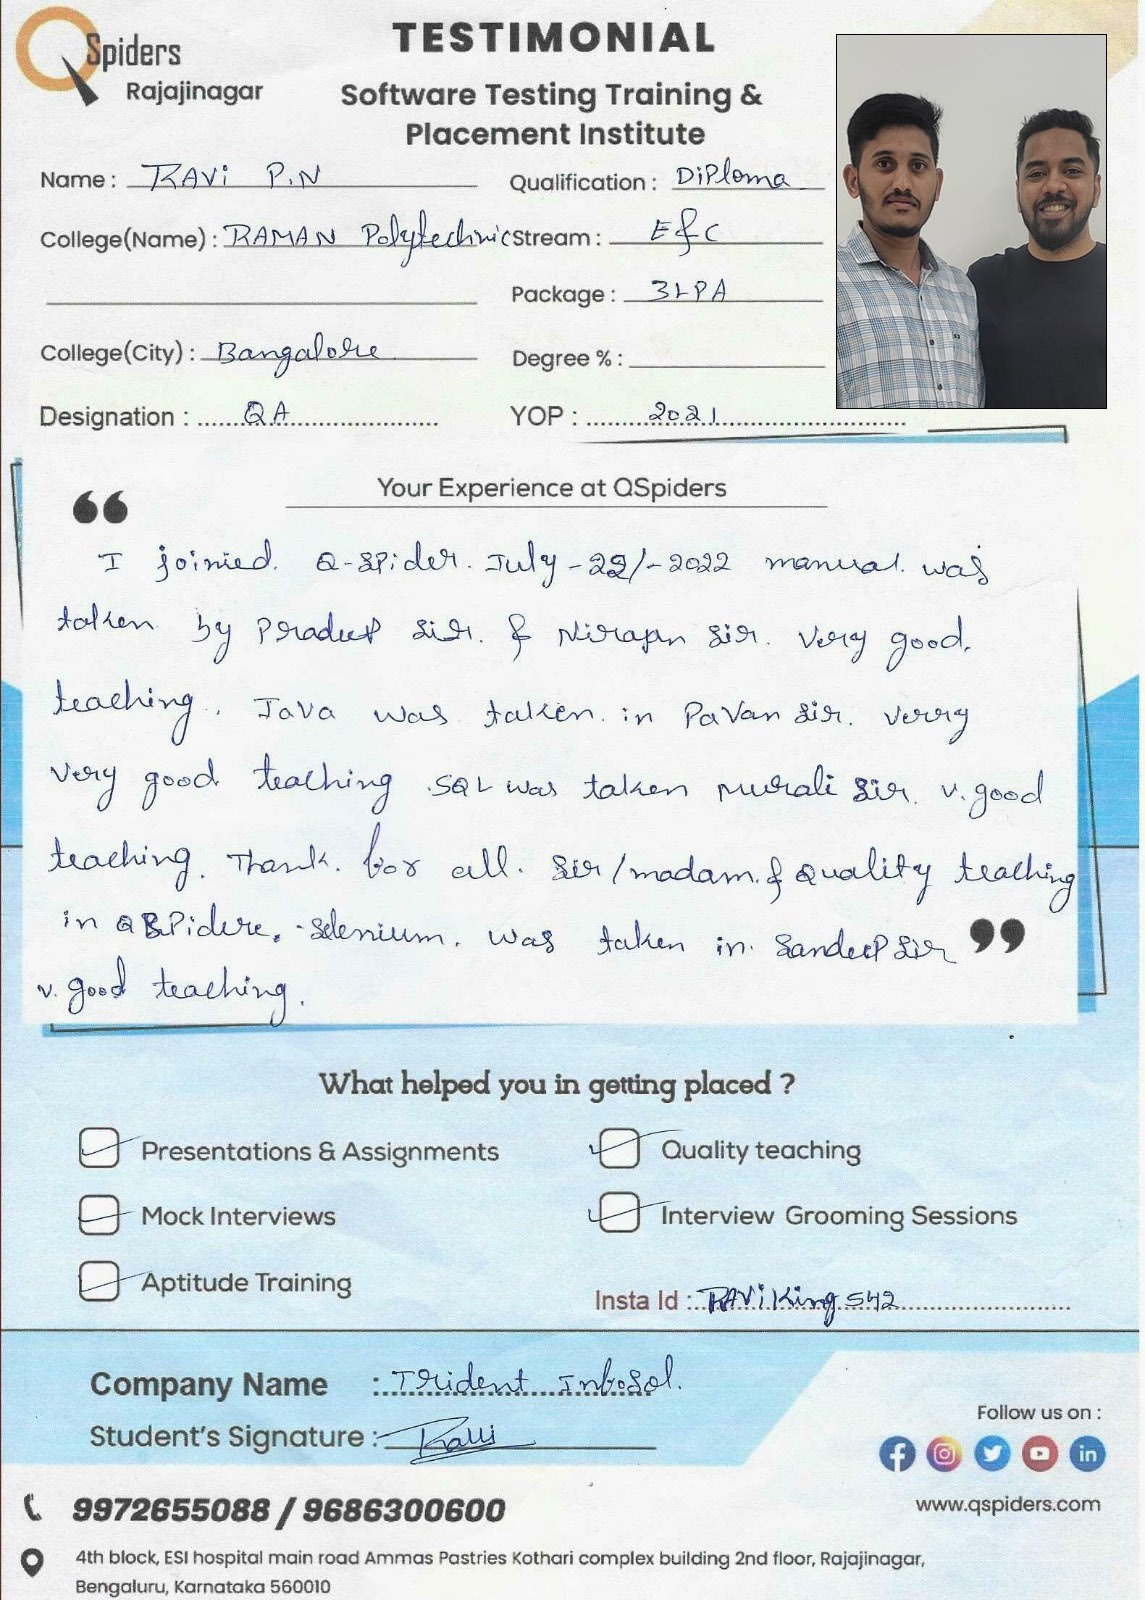 QSpiders
Rajajinagar
TESTIMONIAL
Software Testing Training &
Placement Institute
Name : RAVi P.N
Qualification : DiPloma
College(Name) : RAMAN Polytechnic
Stream : E&C
Package : 3LPA
College(City) : Bangalore
Degree % :
Designation : QA
YOP : 2021
Your Experience at QSpiders
“
I joinied. Q-SPider. July-22/-2022 manual. was
taken by Pradeep Sir. & Niranjan Sir. Very good.
teaching. Java was taken in PaVan Sir. verry
very good teaching SQL was taken Murali Sir. v.good
teaching. Thank. for all. Sir/madam. & Quality teaching
in QSPidere. -Selenium. was taken in. SandeeP Sir ”
v. good teaching.
What helped you in getting placed ?
Presentations & Assignments
Quality teaching
Mock Interviews
Interview Grooming Sessions
Aptitude Training
Insta Id : RAViKing542
Company Name : Trident Infosol.
Student's Signature : Ravi
Follow us on :
www.qspiders.com
9972655088 / 9686300600
4th block, ESI hospital main road Ammas Pastries Kothari complex building 2nd floor, Rajajinagar,
Bengaluru, Karnataka 560010